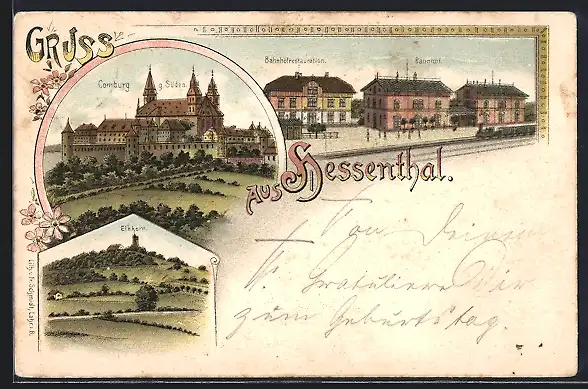 GRUSS
Comburg g. Süden
Bahnhofrestauration.
Bahnhof.
AUS Hessenthal.
Einkorn.
Von Deinem
Gratuliere Dir
zum Geburtstag.